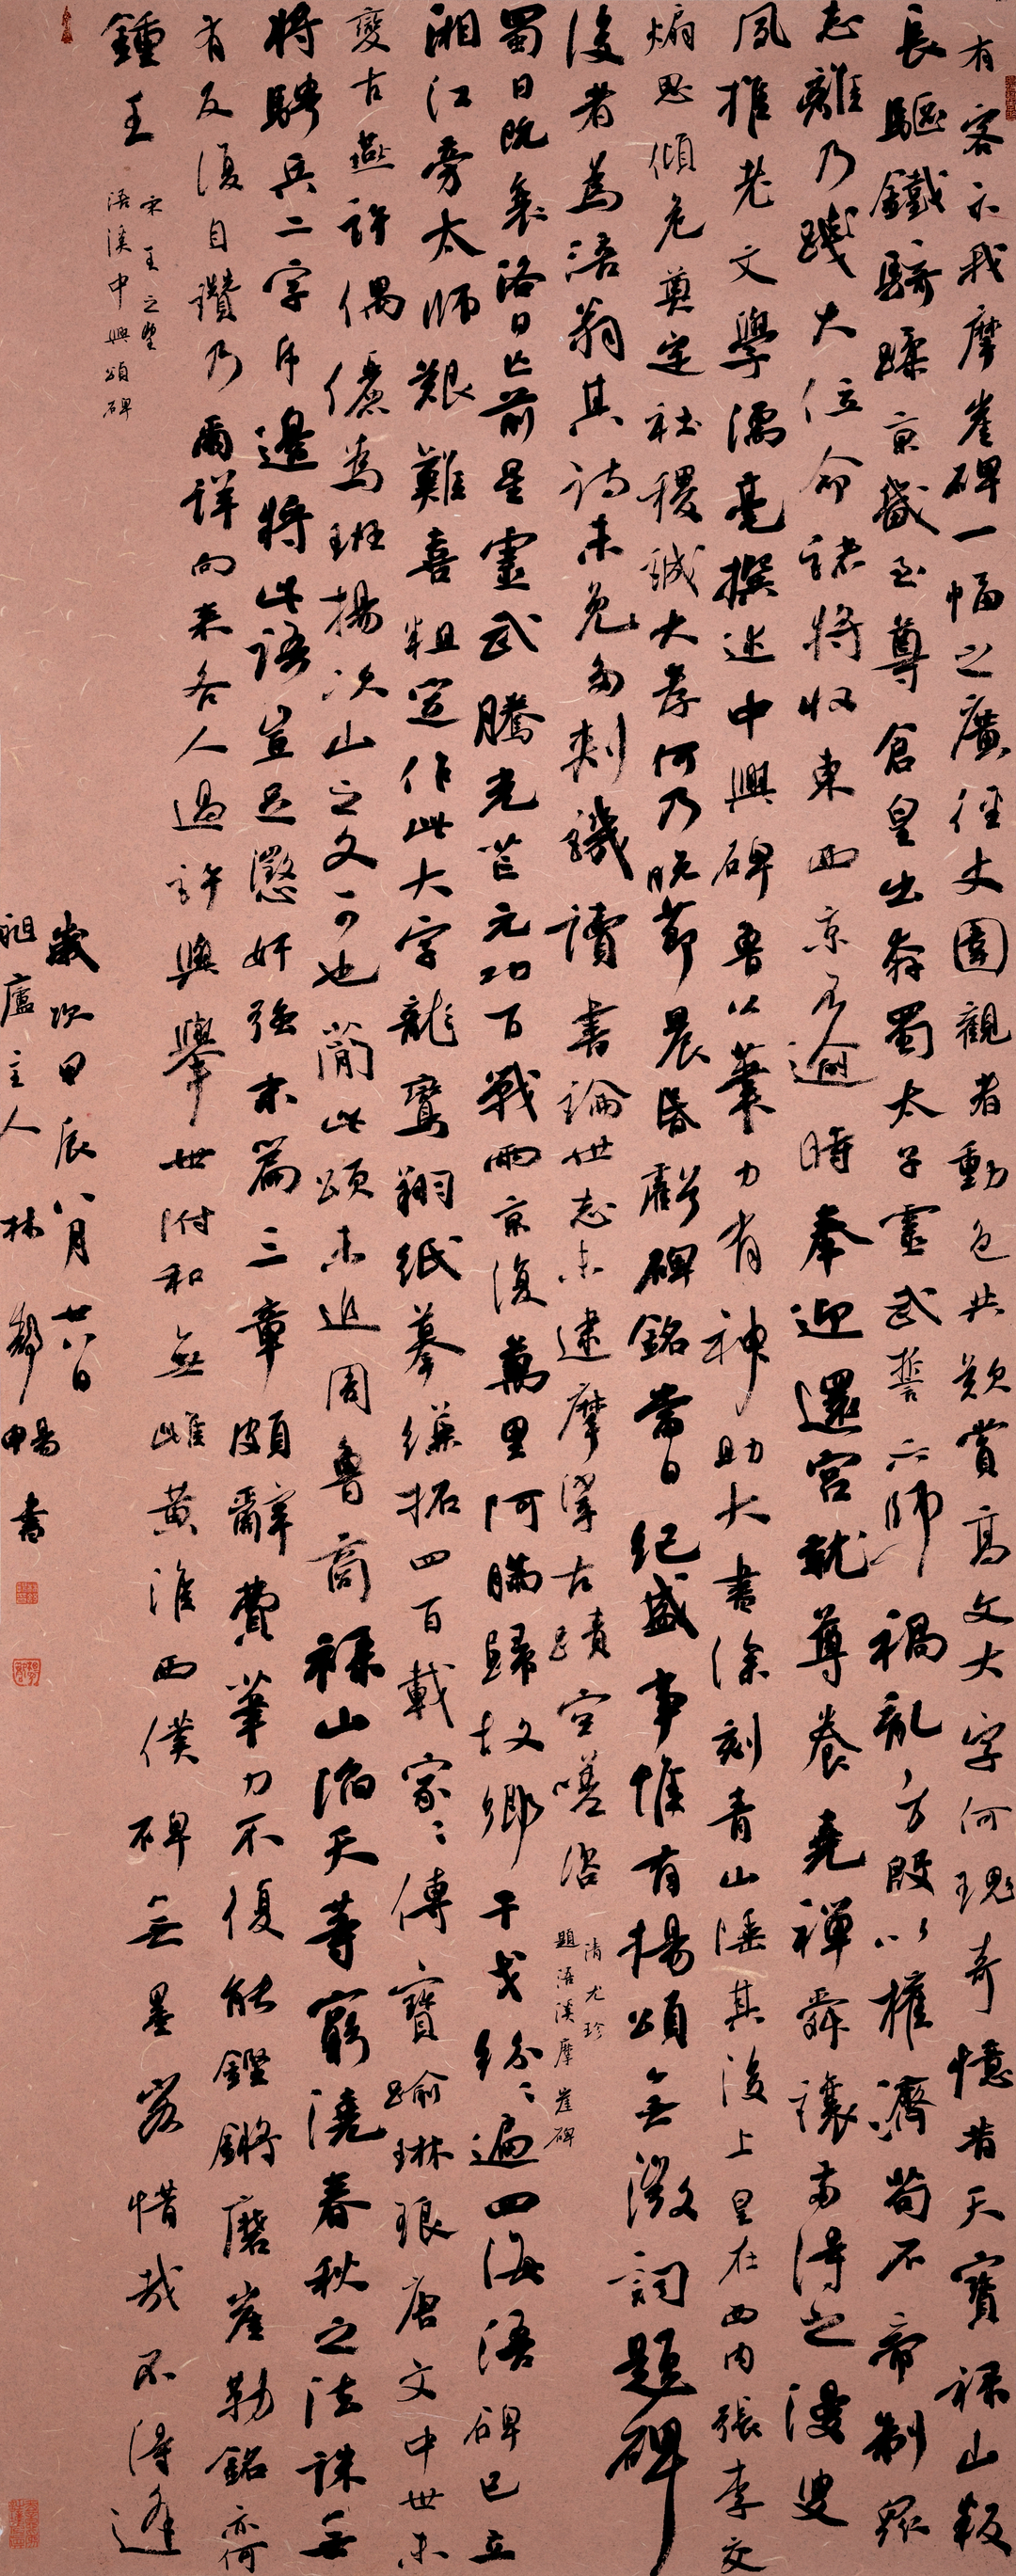 有客示我摩崖碑一幅之廣徑丈圍觀者動色共歎賞高文大字何瑰奇憶昔天寶祿山叛
長驅鐵騎蹂京畿至尊倉皇出奔蜀太子靈武誓六師禍亂方殷以權濟苟不帝制眾
志離乃踐大位命諸將收東西京不逾時奉迎還宮就尊養堯禪舜讓兩得之漫叟
夙推老文學濡毫撰述中興碑魯公筆力有神助大書深刻青山陲其後上皇在西內張李交
煽思傾危奠定社稷誠大孝何乃晚節晨昏虧碑銘當日紀盛事惟有揚頌無微詞題碑
後者為浯翁其詩未免多刺譏讀書論世志未逮摩挲古蹟空嗟咨
清尤珍
題浯溪摩崖碑
蜀日既衰洛日亡前星靈武騰光芒元功百戰兩京復萬里阿瞞歸故鄉干戈紛紛遍四海浯碑已立
湘江旁太師艱難喜粗定作此大字龍鸞翔紙摹縑拓四百載家家傳寶踰琳琅唐文中世未
變古燕許偶儷為班揚次山之文可也簡此頌未追周魯商祿山滔天等窮澆春秋之法誅無
將騁兵二字斥邊將此語豈足懲奸強末篇三章頗辭費筆力不復能鏗鏘磨崖勒銘亦何
有反復自讚乃爾詳向來各人過許與舉世附和無雌黃淮西僕碑無墨客惜哉不得逢
鍾王
宋王之望
浯溪中興頌碑
歲次甲辰八月廿六日
祖廬主人林鄰暢書